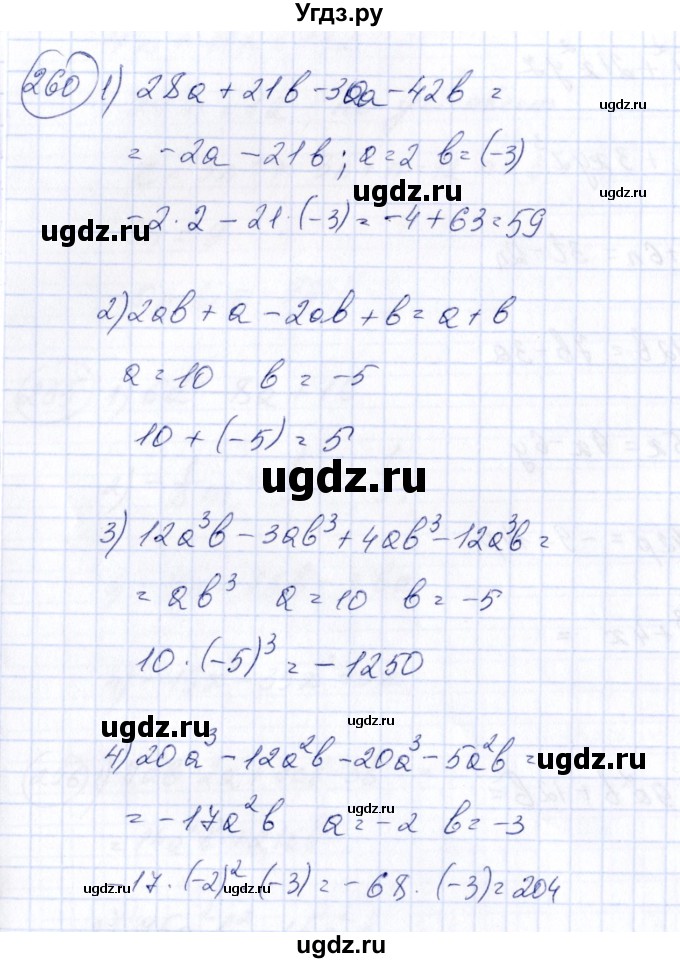 Угдз.ру
260 1) 28a + 21b - 30a - 42b =
= -2a - 21b ; a = 2 b = (-3)
-2·2 - 21·(-3) = -4 + 63 = 59
ugdz.ru
ugdz.ru
ugdz.ru
ugdz.ru
2) 2ab + a - 2ab + b = a + b
a = 10 b = -5
10 + (-5) = 5
ugdz.ru
3) 12a³b - 3ab³ + 4ab³ - 12a³b =
= ab³ a = 10 b = -5
10·(-5)³ = -1250
ugdz.ru
ugdz.ru
4) 20a³ - 12a²b - 20a³ - 5a²b =
ugdz.ru
= -17a²b a = -2 b = -3
ugdz.ru
-17·(-2)²·(-3) = -68·(-3) = 204
ugdz.ru
ugdz.ru
ugdz.ru
ugdz.ru